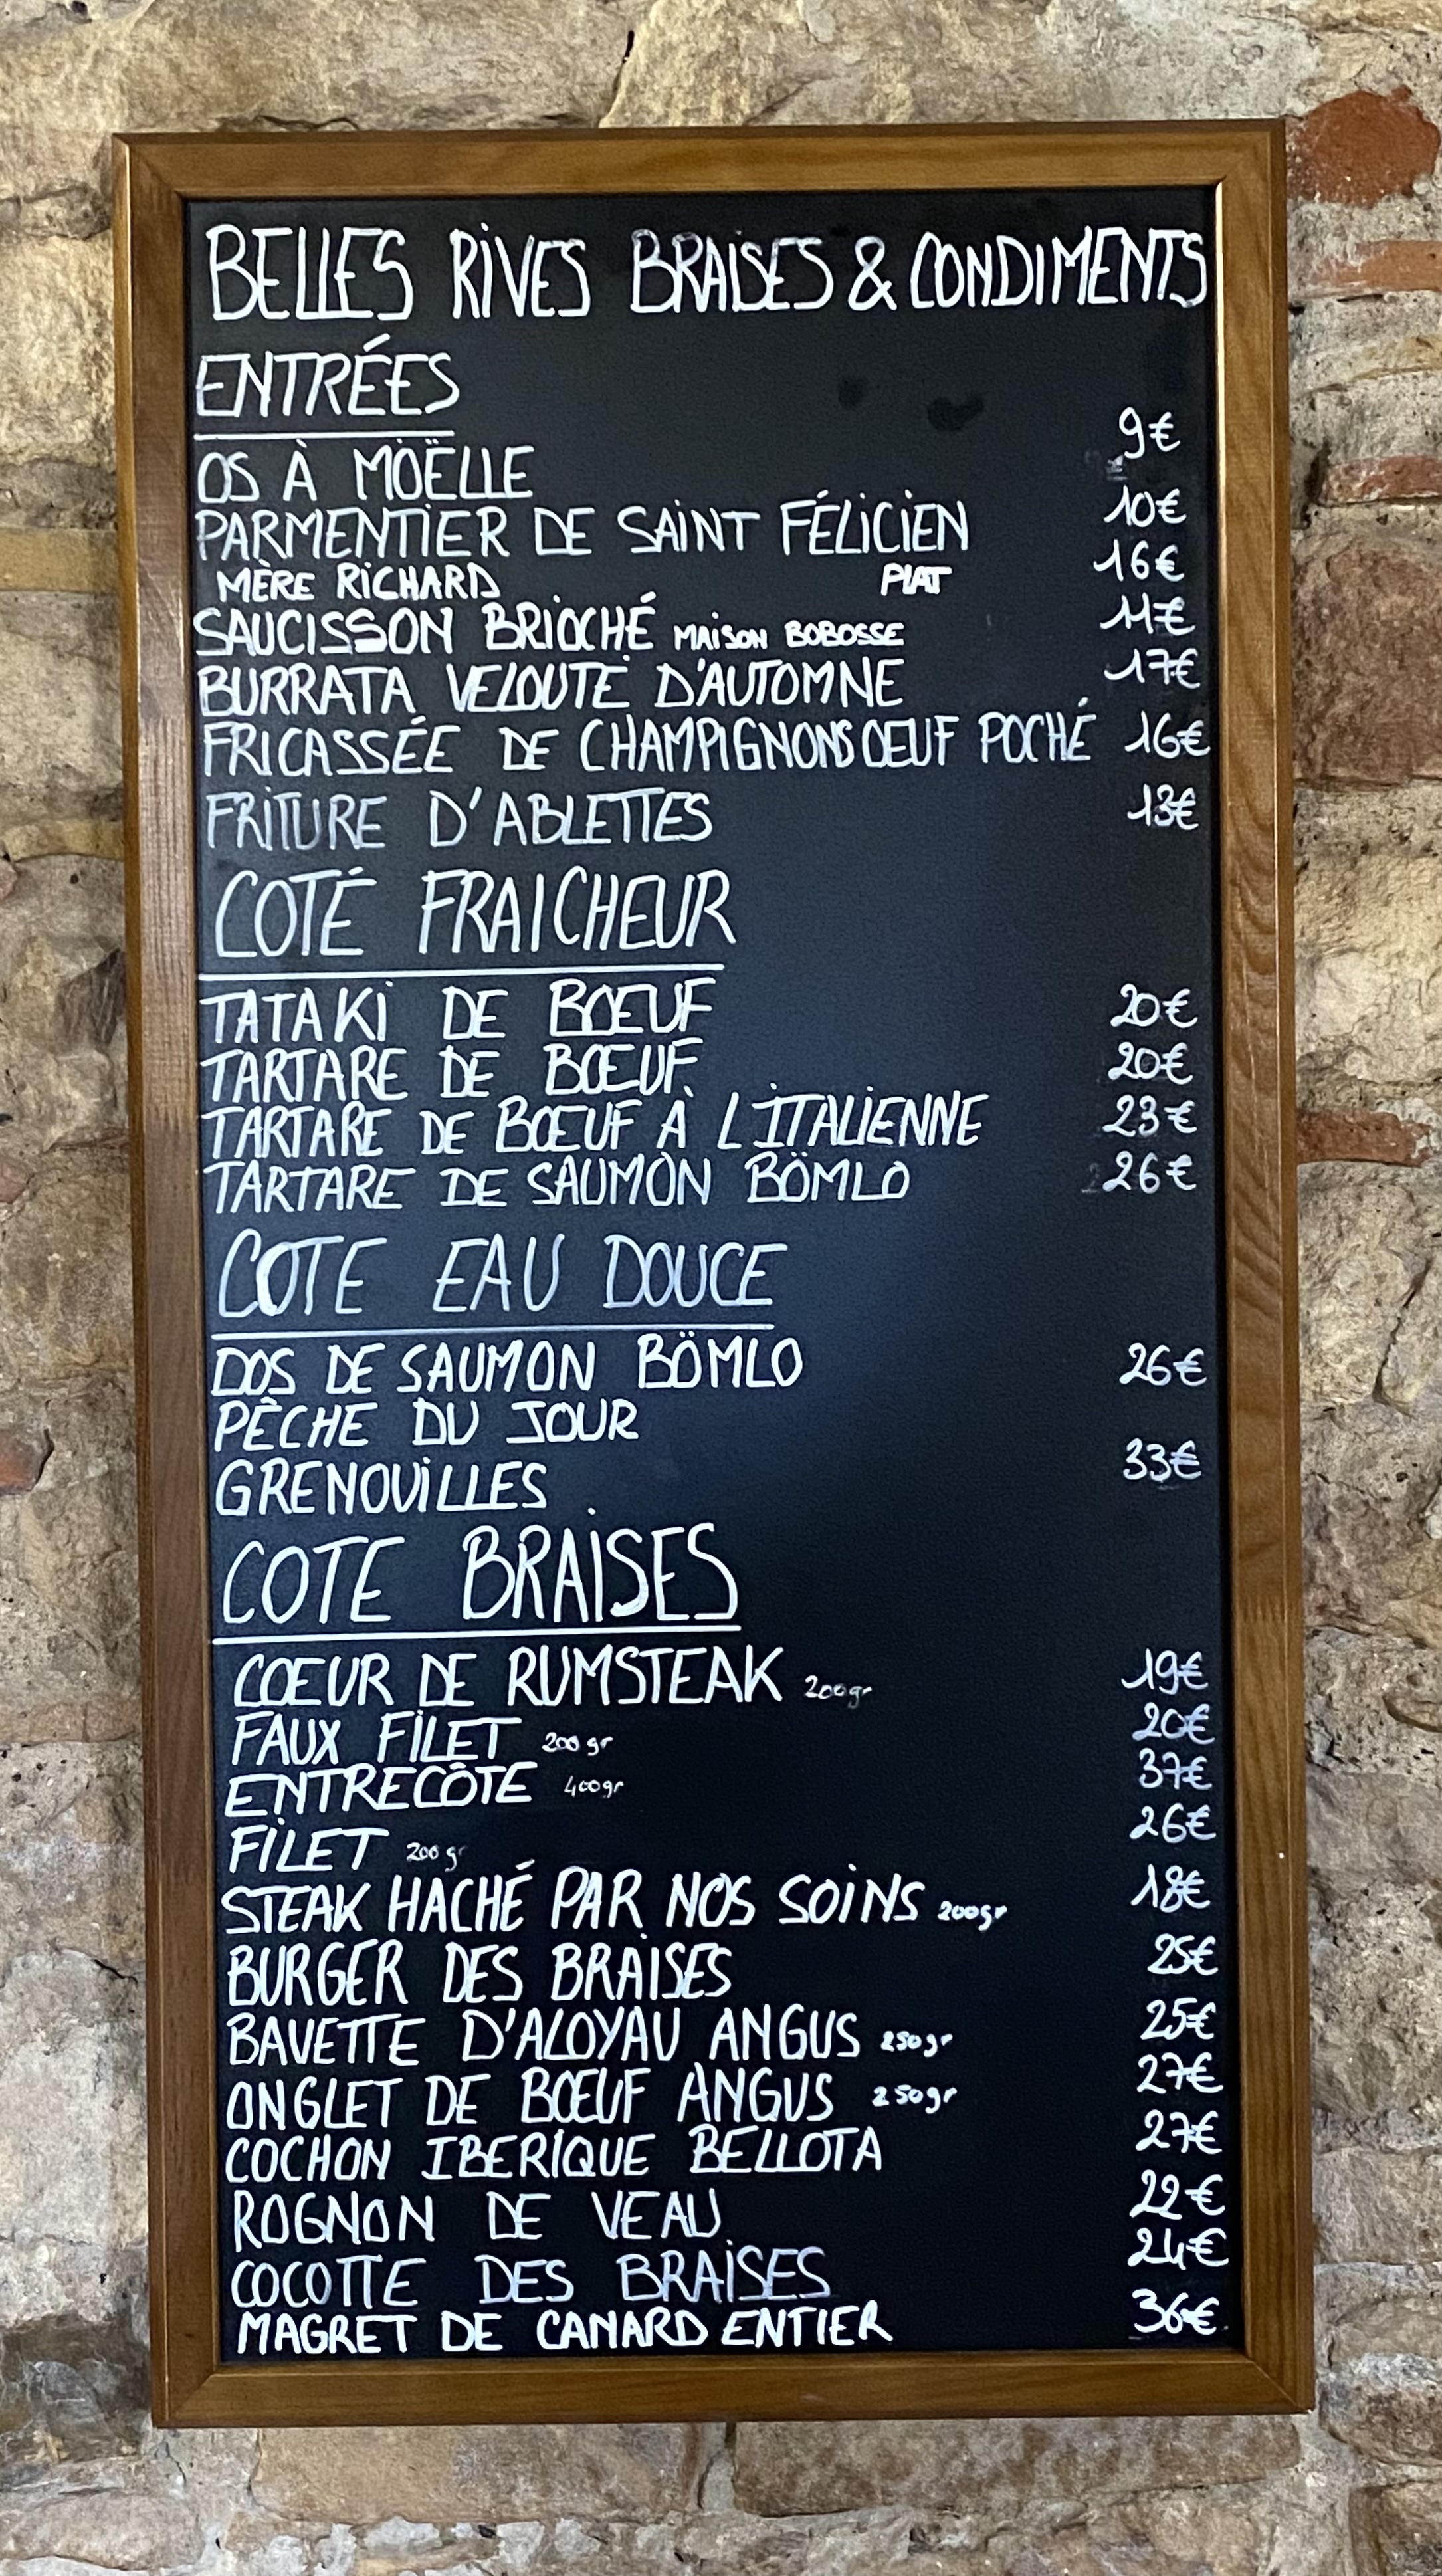 BELLES RIVES BRAISES & CONDIMENTS
ENTRÉES
OS À MOËLLE 9€
PARMENTIER DE SAINT FÉLICIEN 10€
MÈRE RICHARD PLAT 16€
SAUCISSON BRIOCHÉ MAISON BOBOSSE 11€
BURRATA VELOUTÉ D'AUTOMNE 17€
FRICASSÉE DE CHAMPIGNONS OEUF POCHÉ 16€
FRITURE D'ABLETTES 13€
COTÉ FRAICHEUR
TATAKI DE BŒUF 20€
TARTARE DE BŒUF 20€
TARTARE DE BŒUF À L'ITALIENNE 23€
TARTARE DE SAUMON BÖMLO 26€
COTE EAU DOUCE
DOS DE SAUMON BÖMLO 26€
PÊCHE DU JOUR
GRENOUILLES 33€
COTE BRAISES
COEUR DE RUMSTEAK 200gr 19€
FAUX FILET 200gr 20€
ENTRECÔTE 400gr 37€
FILET 200gr 26€
STEAK HACHÉ PAR NOS SOINS 200gr 18€
BURGER DES BRAISES 25€
BAVETTE D'ALOYAU ANGUS 250gr 25€
ONGLET DE BŒUF ANGUS 250gr 27€
COCHON IBERIQUE BELLOTA 27€
ROGNON DE VEAU 22€
COCOTTE DES BRAISES 24€
MAGRET DE CANARD ENTIER 36€